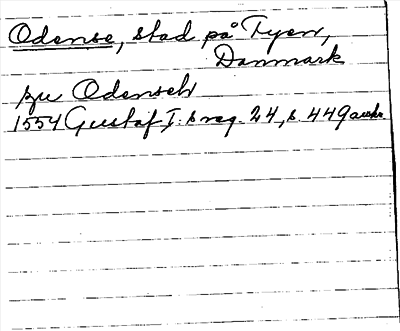 Odense, stad på Fyen,
Danmark
zu Odensch
1554 Gustaf I:s reg. 24, s. 449 avskr.